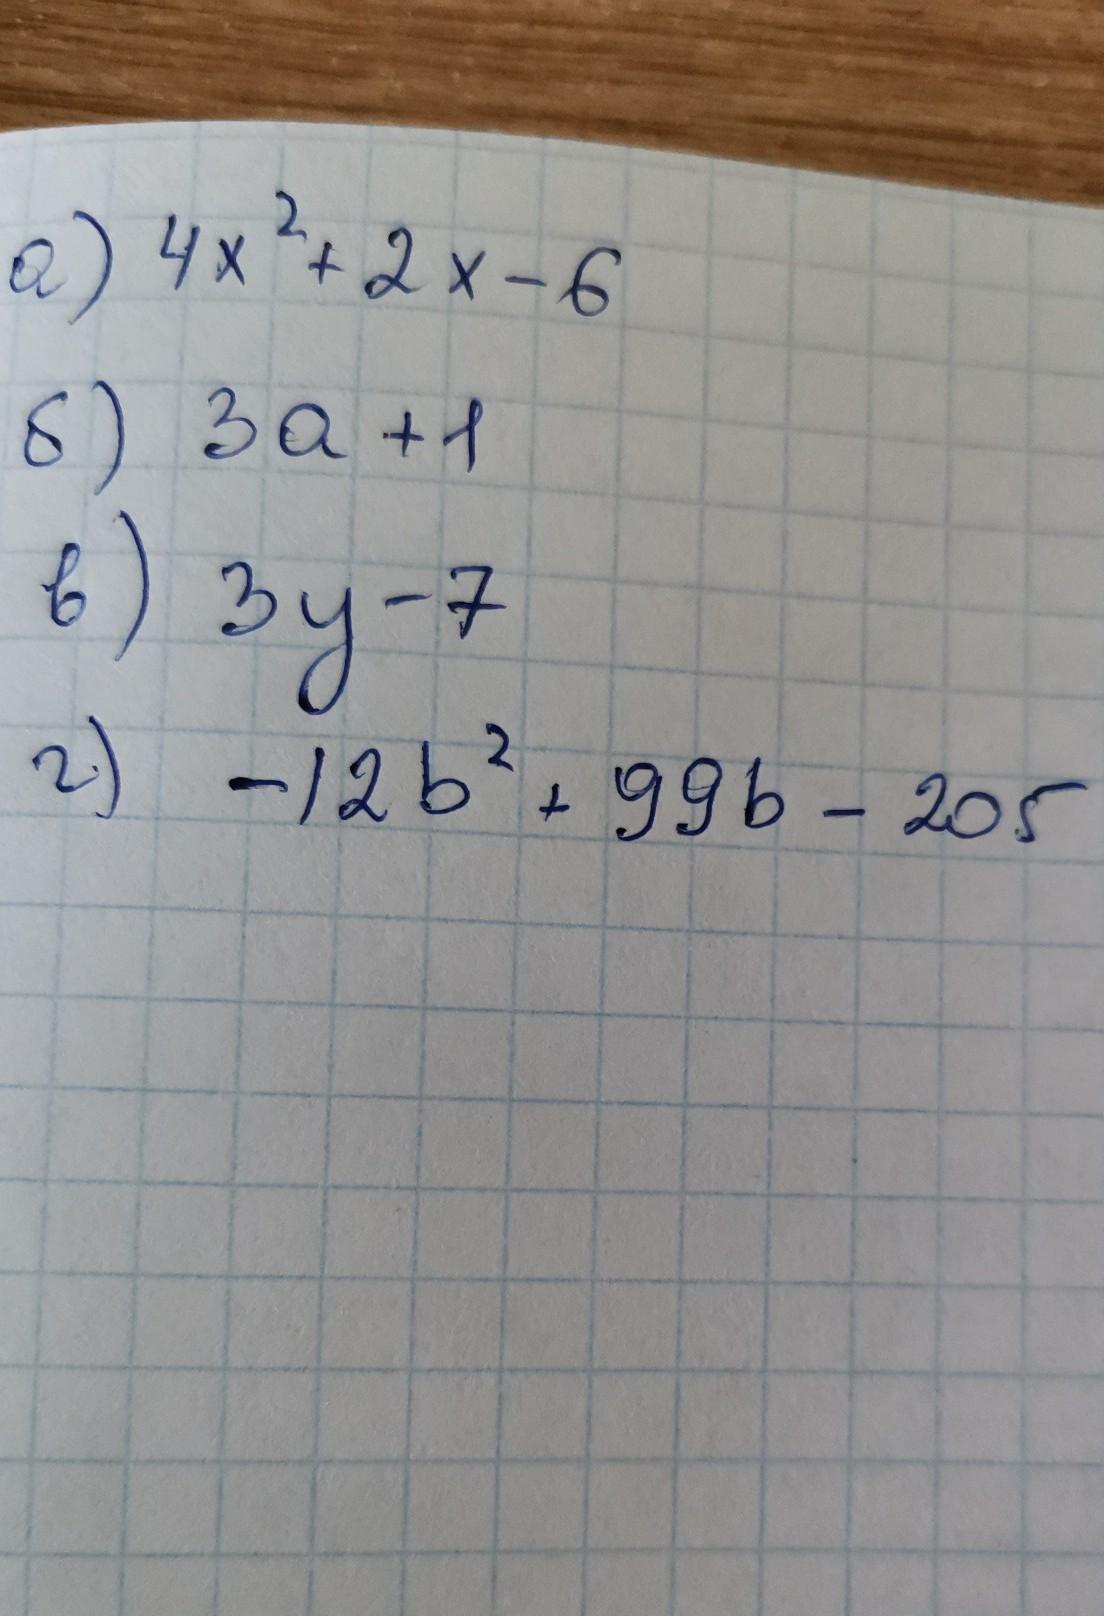 а) 4x² + 2x - 6
б) 3a + 1
в) 3y - 7
г) -12b² + 99b - 205